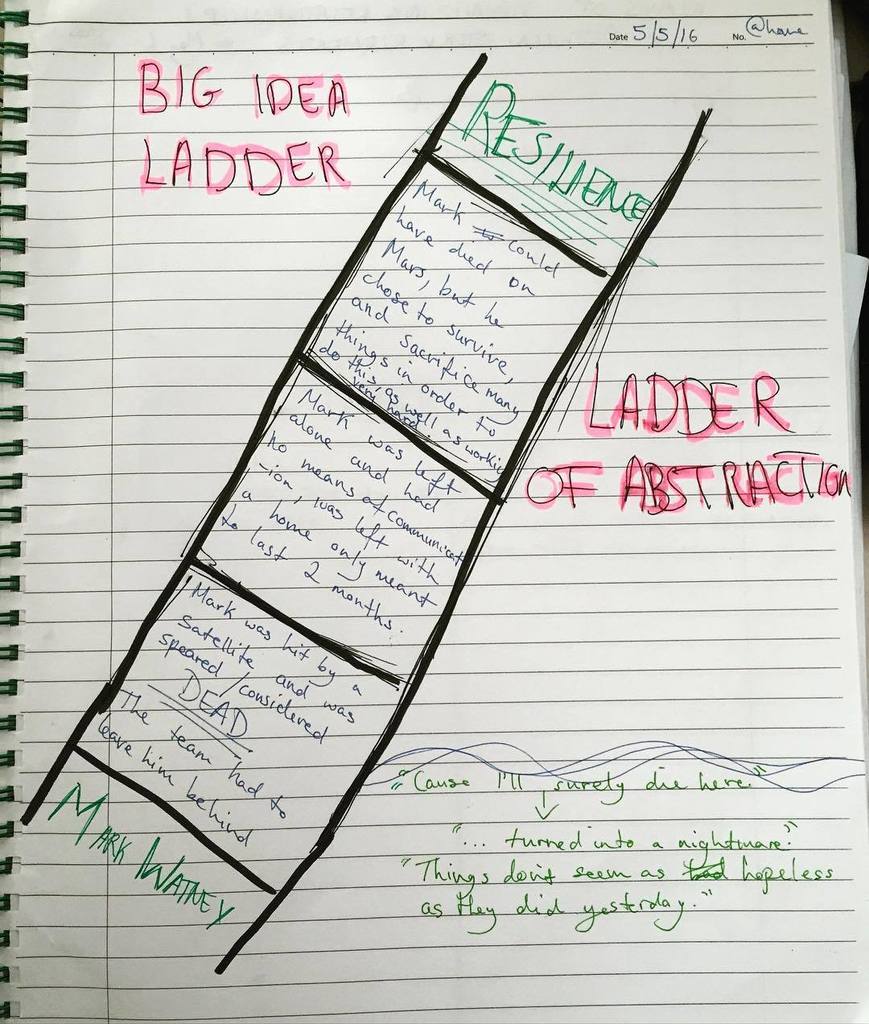 Date 5/5/16 No. @home
BIG IDEA
LADDER
RESILIENCE
Mark could
have died on
Mars, but he
chose to survive,
and sacrifice many
things in order to
do this, as well as workin
very hard.
LADDER
OF ABSTRACTION
Mark was left
alone and had
no means of communicat
-ion, was left with
a home only meant
to last 2 months.
Mark was hit by a
satellite and was
speared/considered
DEAD
The team had to
leave him behind
MARK WATNEY
"Cause I'll surely die here."
"... turned into a nightmare."
"Things don't seem as hopeless
as they did yesterday."